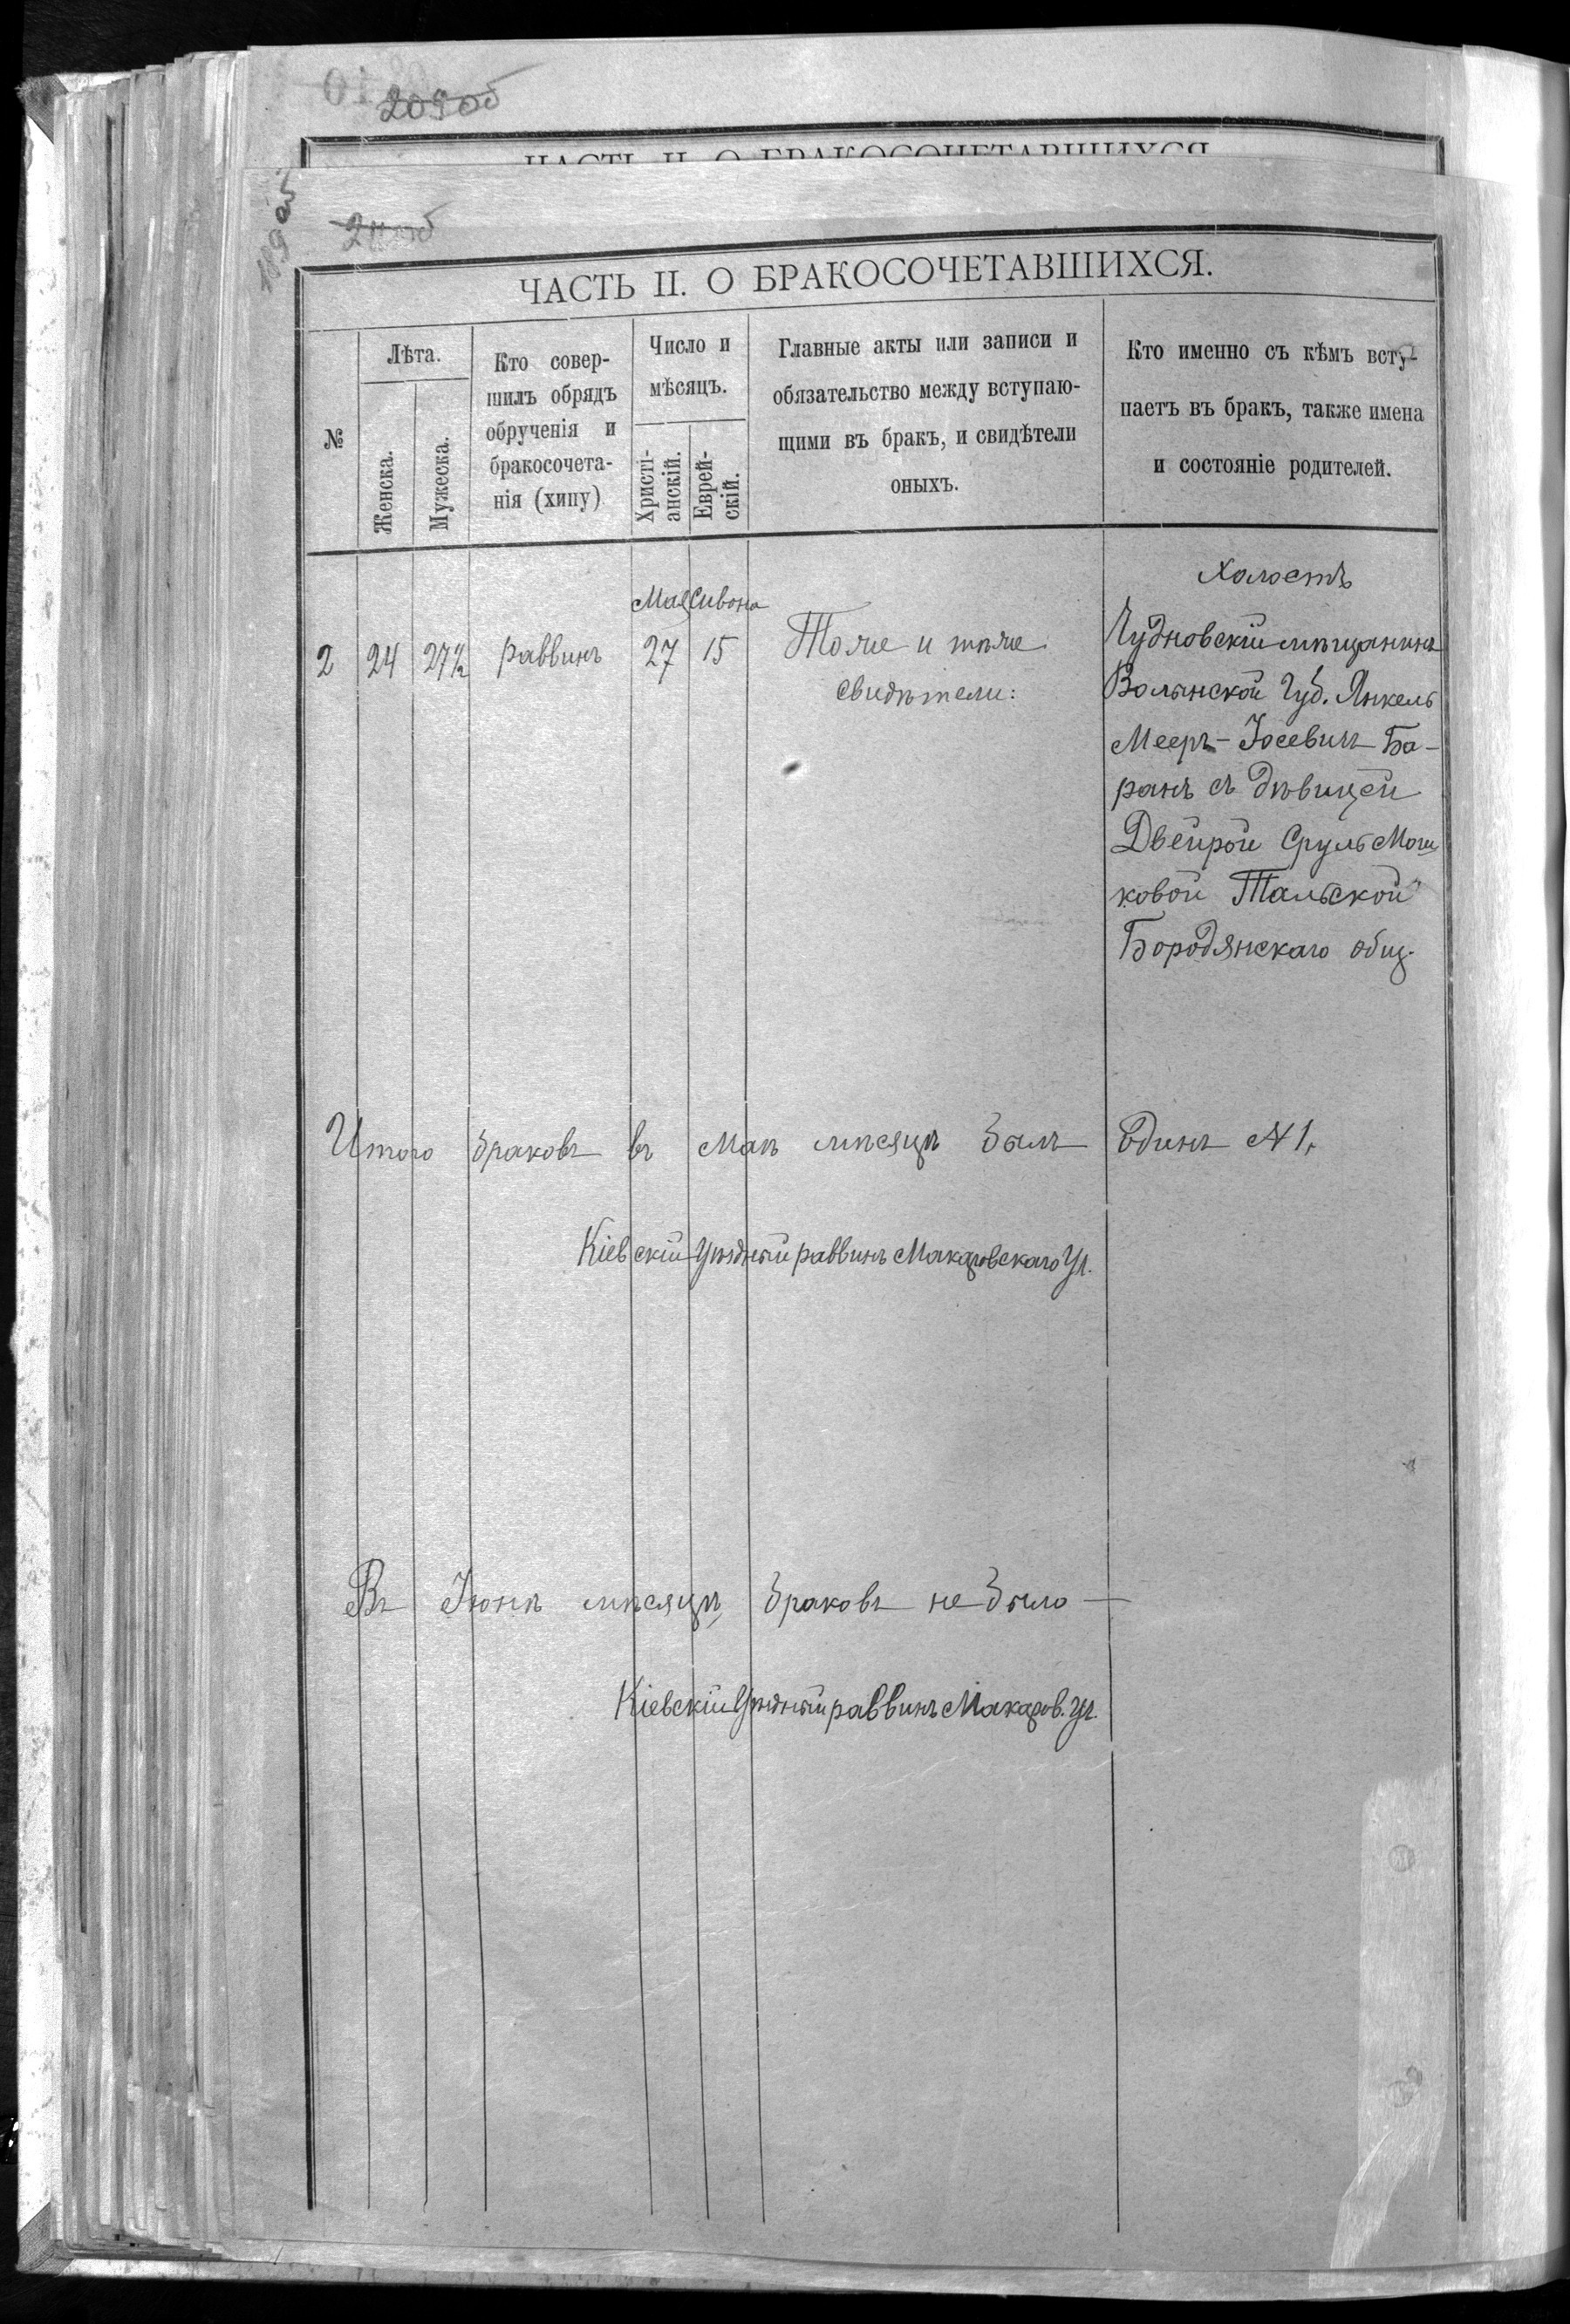 209об
ЧАСТЬ II. О БРАКОСОЧЕТАВШИХСЯ
ЧАСТЬ II. О БРАКОСОЧЕТАВШИХСЯ.
№
Лѣта.
Женска.
Мужеска.
Кто совер-
шилъ обрядъ
обрученія и
бракосочета-
нія (хипу)
Число и
мѣсяцъ.
Христі-
анскій.
Еврей-
скій.
Главные акты или записи и
обязательство между вступаю-
щими въ бракъ, и свидѣтели
оныхъ.
Кто именно съ кѣмъ всту-
паетъ въ бракъ, также имена
и состояніе родителей.
Мая Сивона
2 24 27½ раввинъ 27 15
Тоже и тѣже
свидѣтели:
Холостъ
Чудновскій мѣщанинъ
Волынской Губ. Янкель
Мееръ-Іосевичъ Ба-
ранъ съ дѣвицей
Двейрой Сруль Мош
ковой Тальской
Бородянскаго общ.
Итого браковъ въ Маѣ мѣсяцѣ былъ Одинъ № 1.
Кіевскій Уѣздный раввинъ Макаровскаго Уч.
Въ Іюнѣ мѣсяцѣ браковъ не было
Кіевскій Уѣздный раввинъ Макаров. Уч.